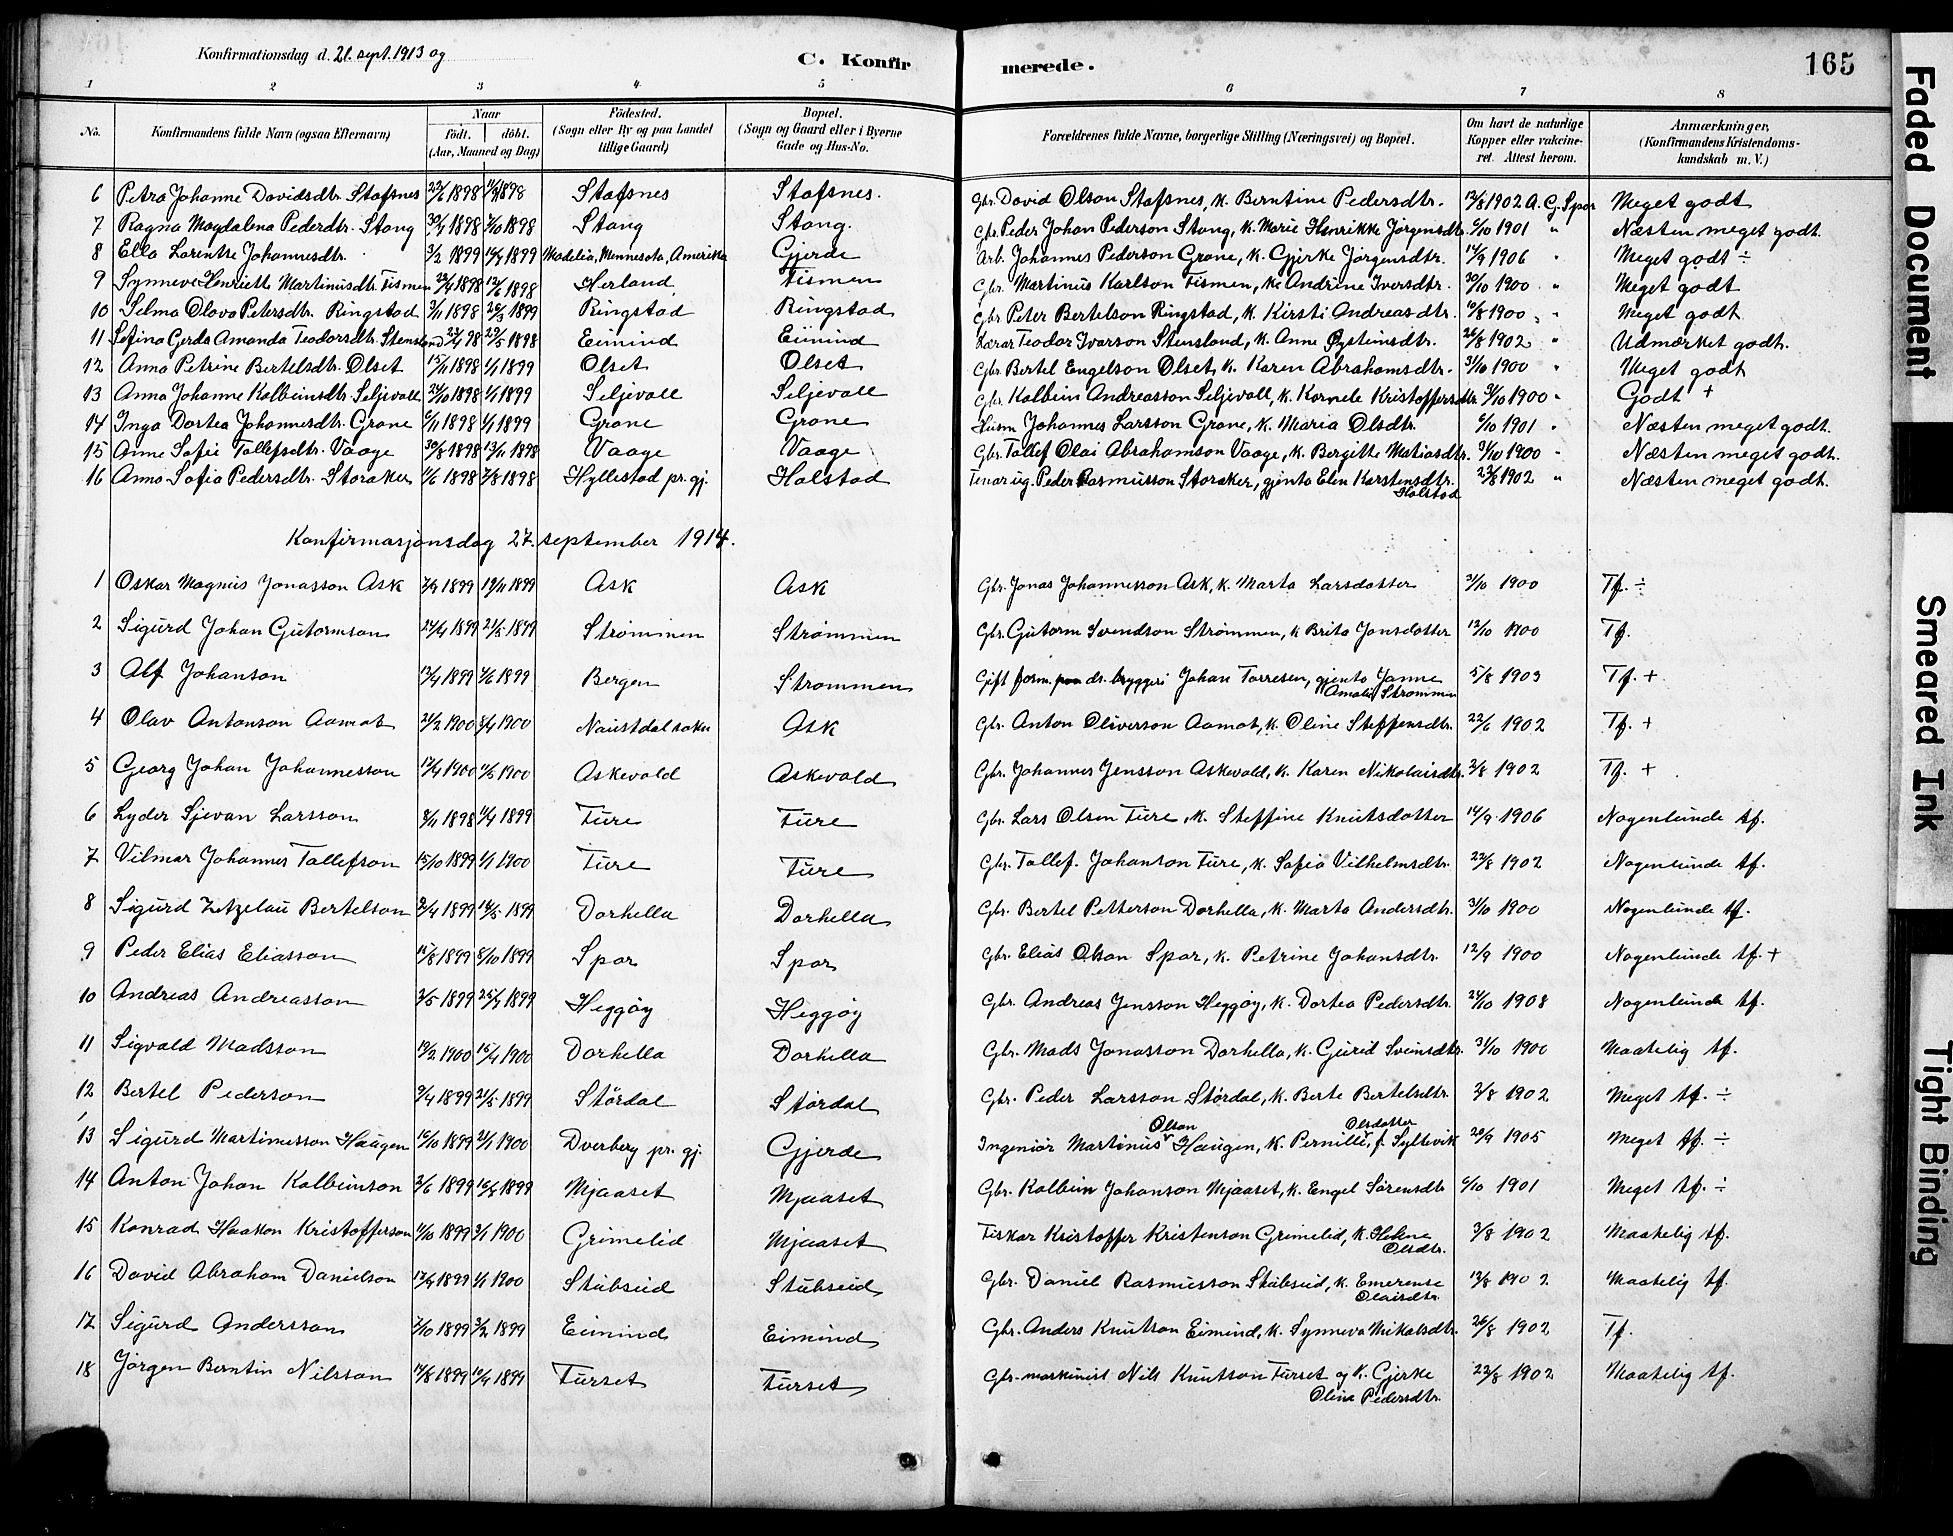 Konfirmationsdag d. 21. sept. 1913 og
C. Konfirmerede.
165
1 2 3 4 5 6 7 8
No.
Konfirmandens fulde Navn (ogsaa Efternavn)
Naar født. døbt. (Aar, Maaned og Dag)
Fødested. (Sogn eller By og paa Landet tillige Gaard)
Bopæl. (Sogn og Gaard eller i Byerne Gade og Hus-No.
Forældrenes fulde Navne, borgerlige Stilling (Næringsvei) og Bopæl.
Om havt de naturlige Kopper eller vakcineret. Attest herom.
Anmærkninger, (Konfirmandens Kristendomskundskab m. V.)
6 Petra Johanne Davidsdtr. Stafsnes 1898 1898 Stafsnes Stafsnes. Gbr. David Olson Stafsnes, k. Berntine Pedersdtr. 12/8 1902 A. G. Spor Meget godt
7 Ragna Magdalena Pederdtr. Stang 1898 1898 Stang Stang. Gbr. Peder Johan Pederson Stang, k. Marie Henrikke Jørgensdtr. 6/10 1901 " Næsten meget godt.
8 Ella Larentze Johannesdtr. 3/2 1899 1899 Madelia, Minnesota, Amerika Gjerde Arb. Johannes Pederson Grane, k. Gjerke Jørgensdtr. 14/9 1906 " Meget godt ÷
9 Synneve Henriette Martinusdtr. Tismen 1898 1898 Herland Tismen Gbr. Martinus Karlson Tismen, k. Andrine Iversdtr. 30/10 1900 " Meget godt
10 Selma Olava Petersdtr. Ringstad 3/11 1898 1899 Ringstad Ringstad Gbr Peter Bertelson Ringstad, k. Kirsti Andreasdtr. 10/8 1900 " Meget godt
11 Sefina Gerda Amanda Teodorsdtr. Stensland 98 1898 Eimind Eimind Lærar Teodor Ivarson Stensland, k. Anne Øysteinsdtr. 26/8 1902 " Udmærket godt.
12 Anna Petrine Bertelsdtr. Olset 15/11 1898 1/1 1899 Olset Olset Gbr. Bertel Engelson Olset, k. Karen Abrahamsdtr. 31/10 1900 " Meget godt
13 Anna Johanne Kolbeinsdtr. Seljevoll 1898 1/1 1899 Seljevoll Seljevoll Gbr. Kolbein Andreasson Seljevoll, k. Kornele Kristoffersdtr. 31/10 1900 " Godt +
14 Inga Dortea Johannesdtr. Grane 6/11 1898 1/1 1899 Grane Grane Husm Johannes Larsson Grane, k. Maria Olsdtr. 6/10 1901 " Næsten meget godt.
15 Anne Sofie Tollefsdtr. Vaage 30/8 1898 13/11 1898 Vaage Vaage Gbr. Tollef Olai Abrahamson Vaage, k. Bergitte Matiasdtr. 31/10 1900 " Næsten meget godt.
16 Anna Sofia Pedersdtr. Storaker 1/6 1898 7/8 1898 Hyllestad pr. gj. Halstad Tenar ug. Peder Rasmusson Storaker, gjenta Elen Karstensdtr. Halstad 23/8 1902 " Næsten meget godt.
Konfirmasjonsdag 27. september 1914.
1 Oskar Magnus Jonasson Ask 1899 19/11 1899 Ask Ask Gbr. Jonas Johannesson Ask, k. Marta Larsdotter 31/10 1900 Tf. ÷
2 Sigurd Johan Gutormson 24/4 1899 21/5 1899 Strømmen Strømmen Gbr. Gutorm Svendson Strømmen, k Brita Jonsdotter 12/10 1900 Tf.
3 Alf Johanson 1899 1899 Bergen Strømmen Gift form. dr. bryggeri Johan Torresen, gjenta Janne Amalie Strømmen 5/8 1903 Tf. +
4 Olav Antonson Aamot 21/2 1900 1900 Naustdal sokn Ask Gbr. Anton Oliverson Aamot, k. Oline Steffensdtr. 22/6 1902 Tf. +
5 Georg Johan Johannesson 1900 1900 Askevold Askevold Gbr. Johannes Jensson Askevold, k. Karen Nikolaisdtr. 3/8 1902 Tf. +
6 Lyder Sjevan Larsson 1898 1899 Ture Ture Gbr. Lars Olsen Ture, k. Steffine Knutsdotter 14/9 1906 Nogenlunde tf.
7 Vilmar Johannes Tollefson 15/10 1899 1/1 1900 Ture Ture Gbr. Tollef. Johanson Ture, k. Sofia Vilhelmsdtr. 22/8 1902 Nogenlunde tf.
8 Sigurd Zetzelau Bertelson 1899 1899 Dorhella Dorhella Gbr. Bertel Petterson Dorhella, k. Marta Andersdtr. 31/10 1900 Nogenlunde tf.
9 Peder Elias Eliasson 1899 8/10 1899 Spor Spor Gbr. Elias Olson Spor, k. Petrine Johansdtr. 12/9 1900 Nogenlunde tf. +
10 Andreas Andreasson 3/5 1899 1899 Heggøy Heggøy Gbr. Andreas Jensson Heggøy, k. Dortea Pedersdtr. 24/10 1908 Nogenlunde tf.
11 Sigvald Madsson 1900 15/4 1900 Dorhella Dorhella Gbr. Mads Jonasson Dorhella, k. Gurid Sveinsdtr. 31/10 1900 Maatelig tf.
12 Bertel Pederson 9/4 1899 21/5 1899 Størdal Størdal Gbr. Peder Larsson Størdal, k. Berte Bertelsdtr. 2/8 1902 Meget tf. ÷
13 Sigurd Martinusson Haugen 1899 1900 Dverberg pr. gj. Gjerde Ingeniør Martinus Olson Haugen, k. Pernille Olsdotter, f. Syltevik 20/9 1905 Meget tf. ÷
14 Anton Johan Kolbeinson 3/6 1899 1899 Mjaaset Mjaaset Gbr. Kolbein Johanson Mjaaset, k. Engel Sørensdtr 6/10 1901 Meget tf. ÷
15 Konrad Haakon Kristofferson 1899 1900 Grimelid Mjaaset Fiskar Kristoffer Kristenson Grimelid, k. Helene Olsdtr. 3/8 1902 Maatelig tf.
16 David Abraham Danielson 1899 1/1 1900 Stubseid Stubseid Gbr. Daniel Rasmusson Stubseid, k. Emerense Olaisdtr. 13/8 1902 Maatelig tf.
17 Sigurd Andersson 1899 1899 Eimind Eimind Gbr. Anders Knutson Eimind, k. Synneva Mikalsdtr. 26/8 1902 Tf.
18 Jørgen Berntin Nilsson 1899 1899 Turset Turset Gbr. maskinist Nils Knutson Turset og k. Gjerke Olina Pedersdtr. 22/8 1902 Maatelig tf.
Faded Document
Smeared Ink
Tight Binding